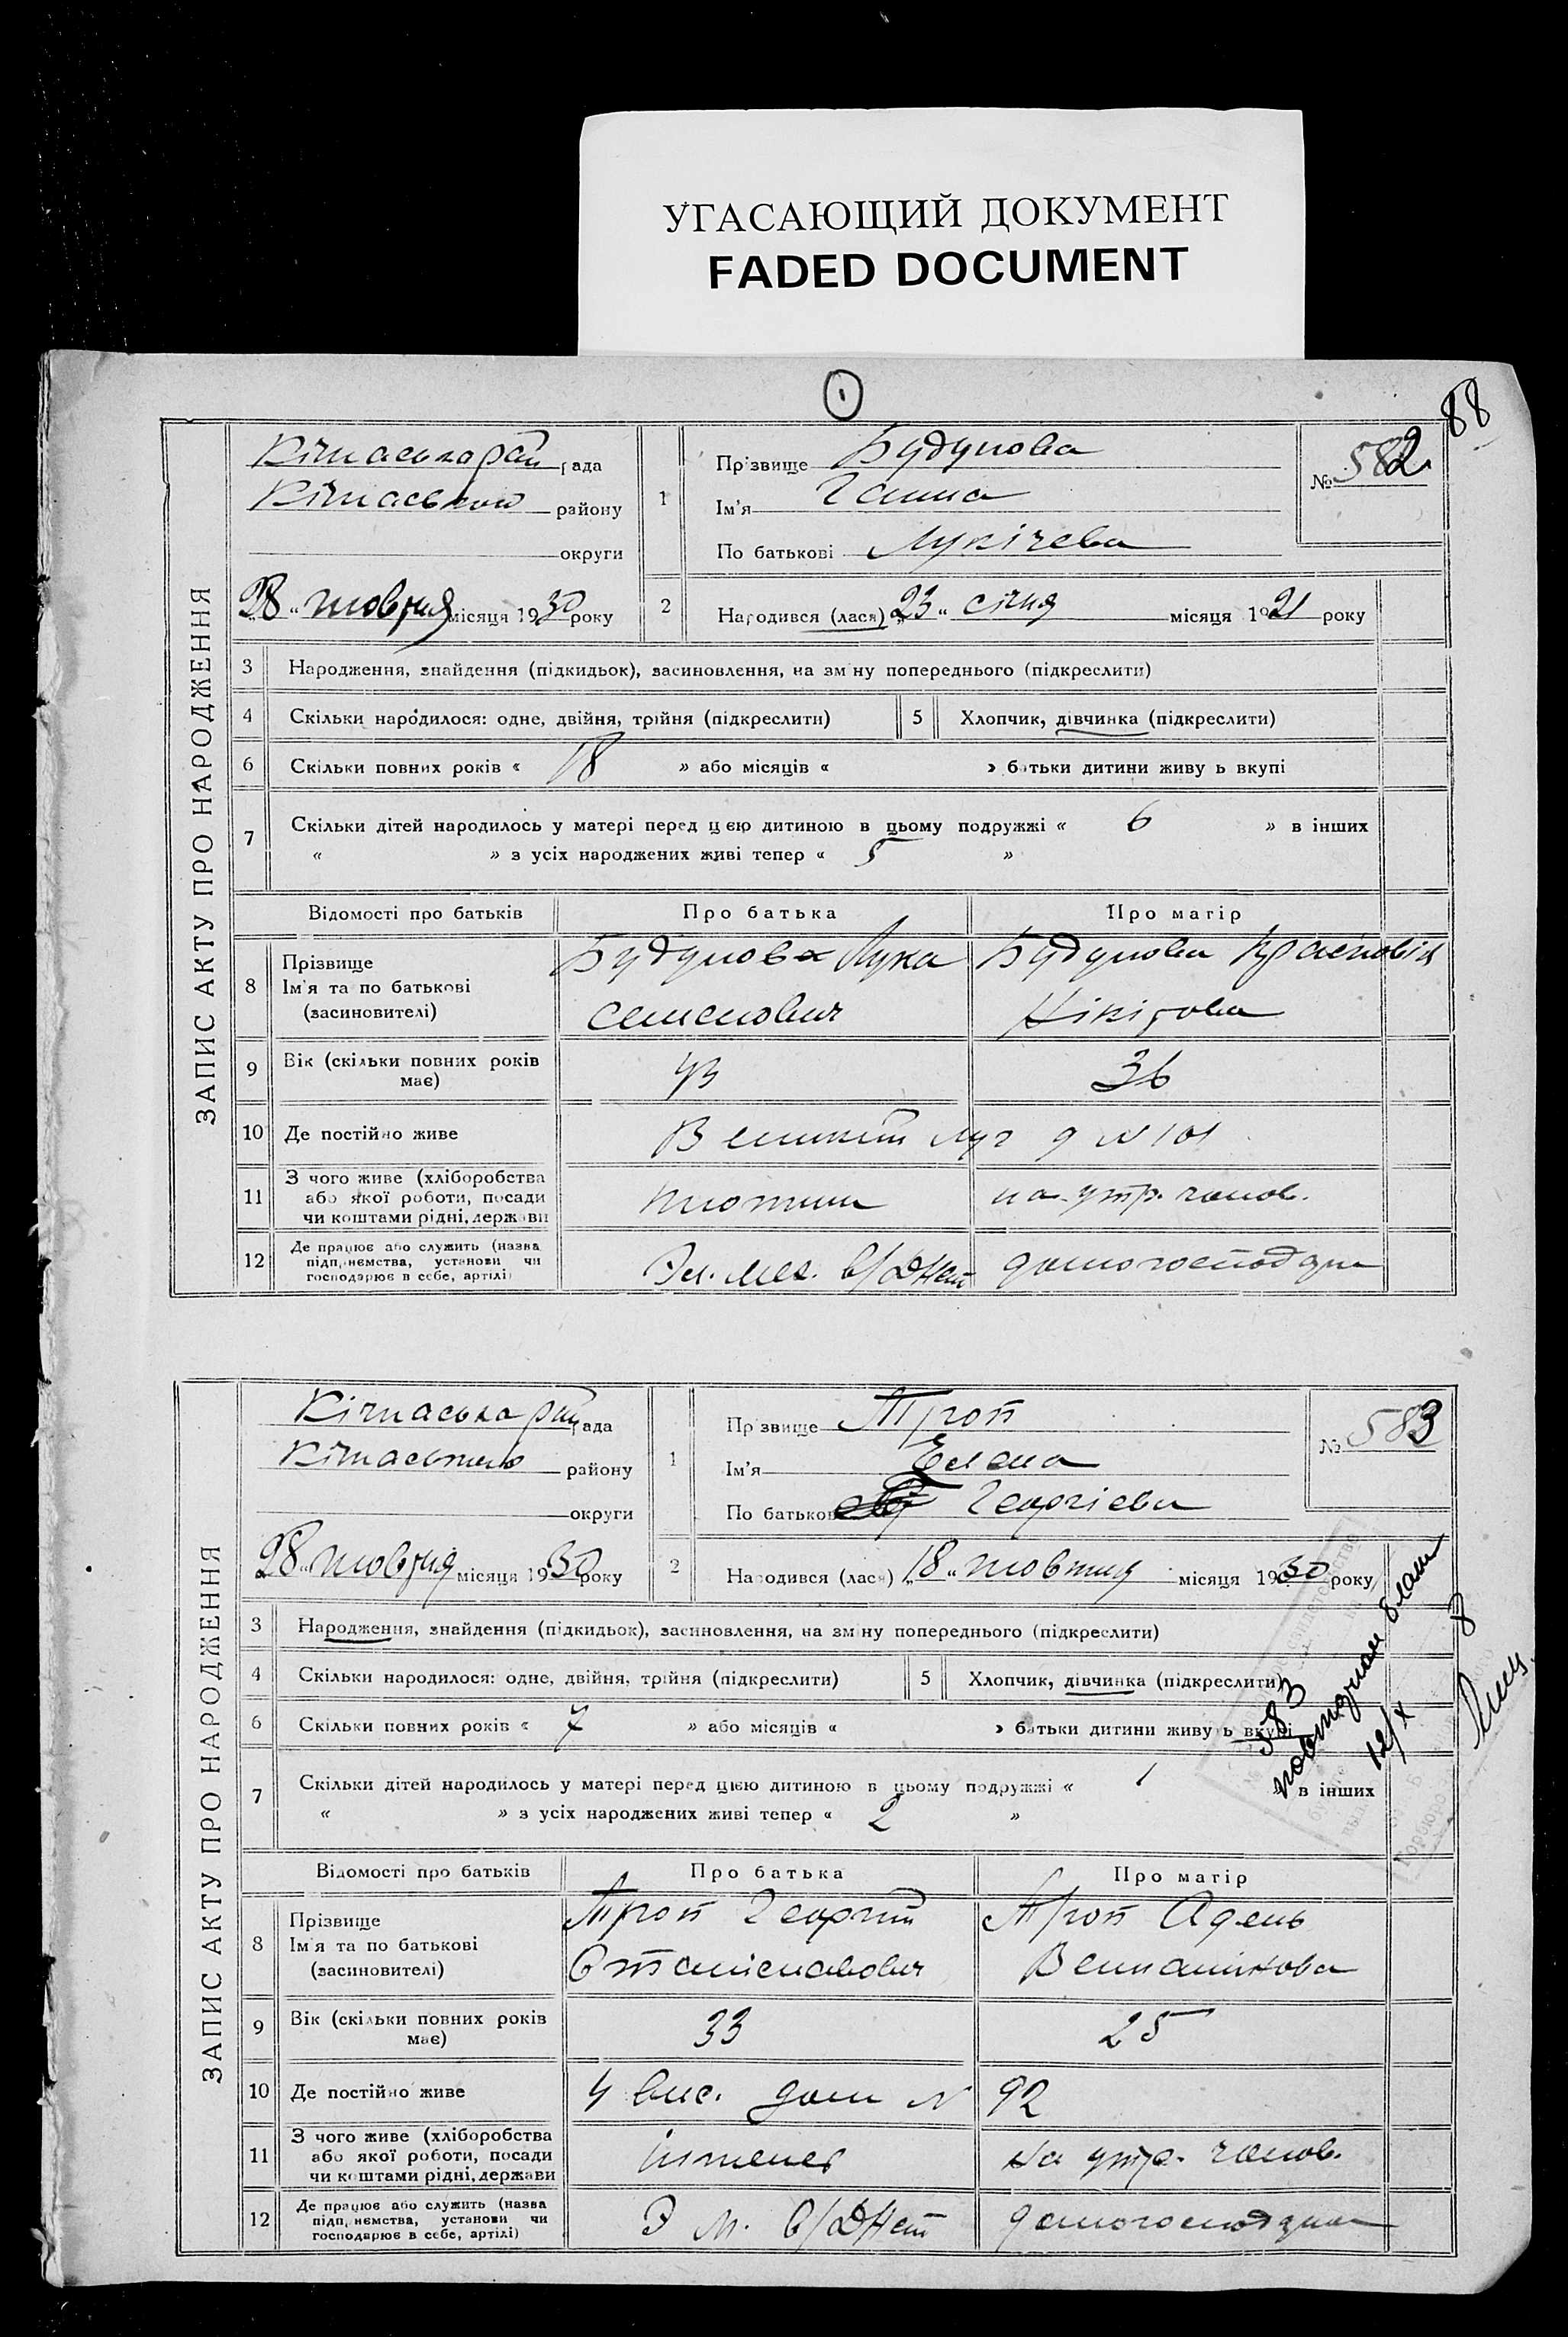 УГАСАЮЩИЙ ДОКУМЕНТ
FADED DOCUMENT
88
ЗАПИС АКТУ ПРО НАРОДЖЕННЯ
Кічкаська рай рада
Кічкаського району
округи
28 " жовтня місяця 1930 року
1
Прізвище Будунова
Ім'я Ганна
По батькові Лукічева
№ 582
2
Народився (лася) „23" січня місяця 1921 року
3 Народження, знайдення (підкидьок), засиновлення, на зміну попереднього (підкреслити)
4 Скільки народилося: одне, двійня, трійня (підкреслити)
5 Хлопчик, дівчинка (підкреслити)
6 Скільки повних років « 18 » або місяців « » батьки дитини живуть вкупі
7 Скільки дітей народилось у матері перед цією дитиною в цьому подружжі « 6 » в інших
« » з усіх народжених живі тепер « 5 »
Відомості про батьків Про батька Про матір
8 Прізвище
Ім'я та по батькові
(засиновителі)
Будунов Лука
Семенович
Будунова
Нікітова
9 Вік (скільки повних років має) 43 36
10 Де постійно живе
Великий Луг д N 101
11 З чого живе (хліборобства
або якої роботи, посади
чи коштами рідні, держави
на утр. чолов.
12 Де працює або служить (назва
підприємства, установи чи
господарює в себе, артілі)
Эл. мех. в/Днет
домогосподарка
ЗАПИС АКТУ ПРО НАРОДЖЕННЯ
Кічкаська рай рада
Кічкаського району
округи
28 " жовтня місяця 1930 року
1
Прізвище Троп
Ім'я Елена
По батькові Георгіева
№ 583
2
Народився (лася) „18" жовтня місяця 1930 року
3 Народження, знайдення (підкидьок), засиновлення, на зміну попереднього (підкреслити)
4 Скільки народилося: одне, двійня, трійня (підкреслити)
5 Хлопчик, дівчинка (підкреслити)
6 Скільки повних років « 7 » або місяців « » батьки дитини живуть вкупі
7 Скільки дітей народилось у матері перед цією дитиною в цьому подружжі « 1 » в інших
« » з усіх народжених живі тепер « 2 »
583
12/X
Відомості про батьків Про батька Про матір
8 Прізвище
Ім'я та по батькові
(засиновителі)
Троп Георгий
Станіславович
Троп
9 Вік (скільки повних років має) 33 25
10 Де постійно живе
4 вис. дом N 92
11 З чого живе (хліборобства
або якої роботи, посади
чи коштами рідні, держави
інженер
на утр. чолов.
12 Де працює або служить (назва
підприємства, установи чи
господарює в себе, артілі)
Э М. в/Днет
домогосподарка